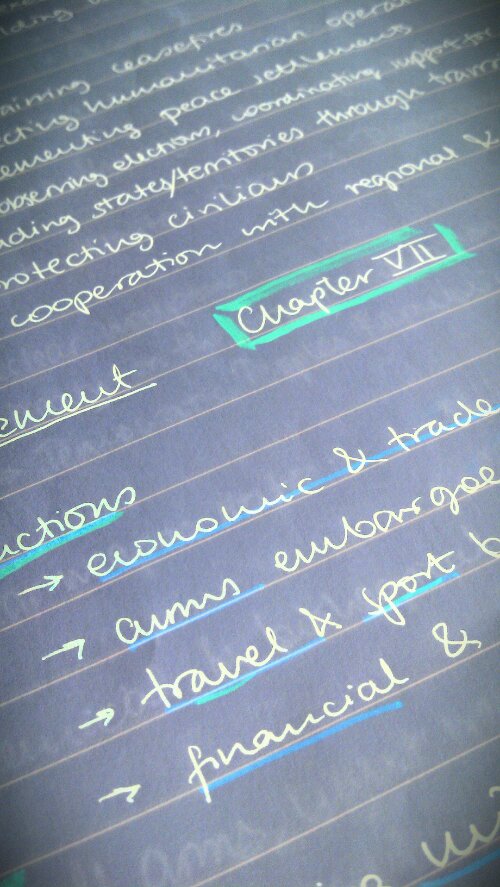 aining ceasefires
cting humanitarian opera
ementing peace settlements
observing elections, coordinating support for
ading states/territories through trans
rotecting civilians
cooperation with regional &
Chapter VII
ement
nctions
→ economic & trade
→ arms embargoe
→ travel & sport b
→ financial &